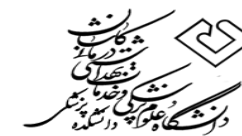 دانشگاه علوم پزشکی و خدمات
بهداشتی درمانی
کاشان
دانشکده پزشکی